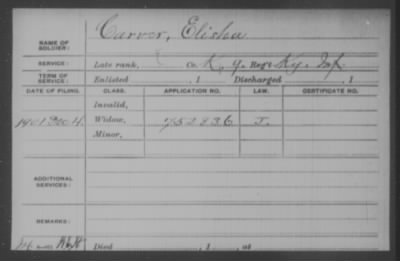 NAME OF SOLDIER: Carver, Elisha
SERVICE: Late rank, Co. K, 9. Reg't Ky. Inf.
TERM OF SERVICE: Enlisted , 1 Discharged , 1
DATE OF FILING. CLASS. APPLICATION NO. LAW. CERTIFICATE NO.
Invalid,
1901 Dec 4. Widow, 752236 J.
Minor,
ADDITIONAL SERVICES:
REMARKS:
Died , 1 , at